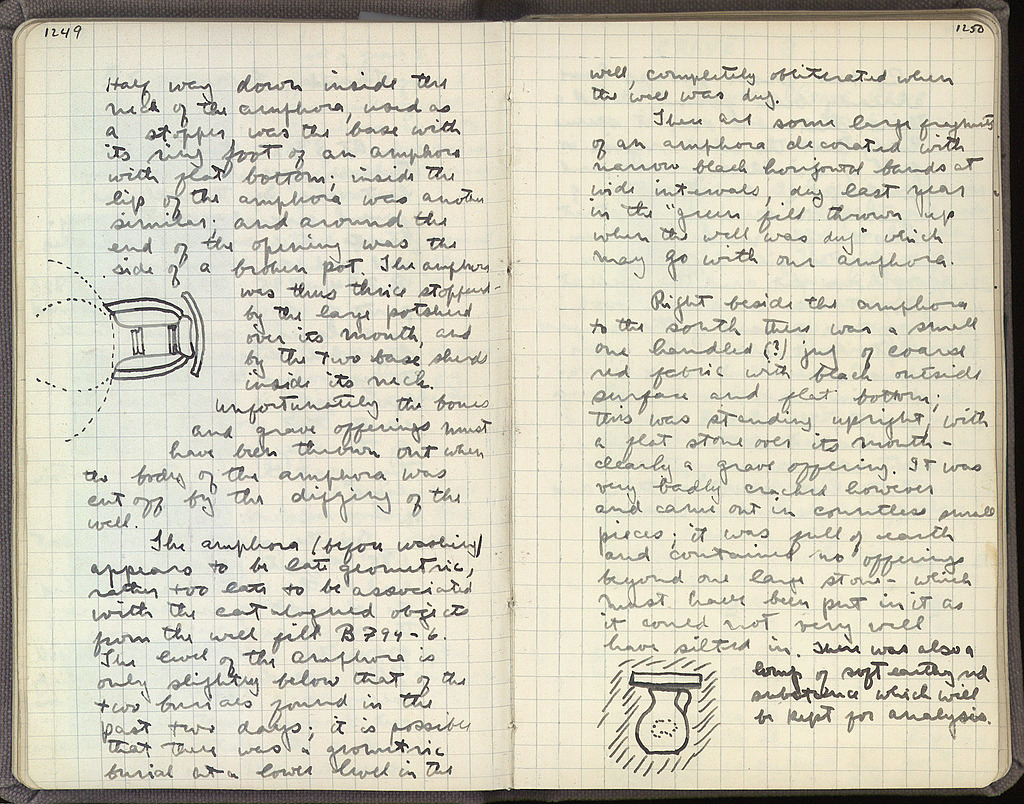 1249
Half way down inside the
neck of the amphora, used as
a stopper was the base with
its ring foot of an amphora
with flat bottom; inside the
lip of the amphora was another
similar; and around the
end of the opening was the
side of a broken pot. The amphora
was thus thrice stoppered -
by the large potsherd
over its mouth, and
by the two base sherds
inside its neck.
Unfortunately the bones
and grave offerings must
have been thrown out when
the body of the amphora was
cut off by the digging of the
well.
The amphora (before washing)
appears to be late geometric,
rather too late to be associated
with the catalogued objects
from the well fill B 794-6.
The level of the amphora is
only slightly below that of the
two burials found in the
past two days; it is possible
that there was a geometric
burial at a lower level in the
1250
well, completely obliterated when
the well was dug.
There are some large fragments
of an amphora decorated with
narrow black horizontal bands at
wide intervals, dug last year
in the "green fill thrown up
when the well was dug" which
may go with our amphora.
Right beside the amphora
to the south there was a small
one handled (?) jug of coarse
red fabric with black outside
surface and flat bottom;
this was standing upright, with
a flat stone over its mouth -
clearly a grave offering. It was
very badly cracked however
and came out in countless small
pieces; it was full of earth
and contained no offerings
beyond one large stone - which
must have been put in it as
it could not very well
have silted in. There was also a
lump of soft earthy red
substance which will
be kept for analysis.